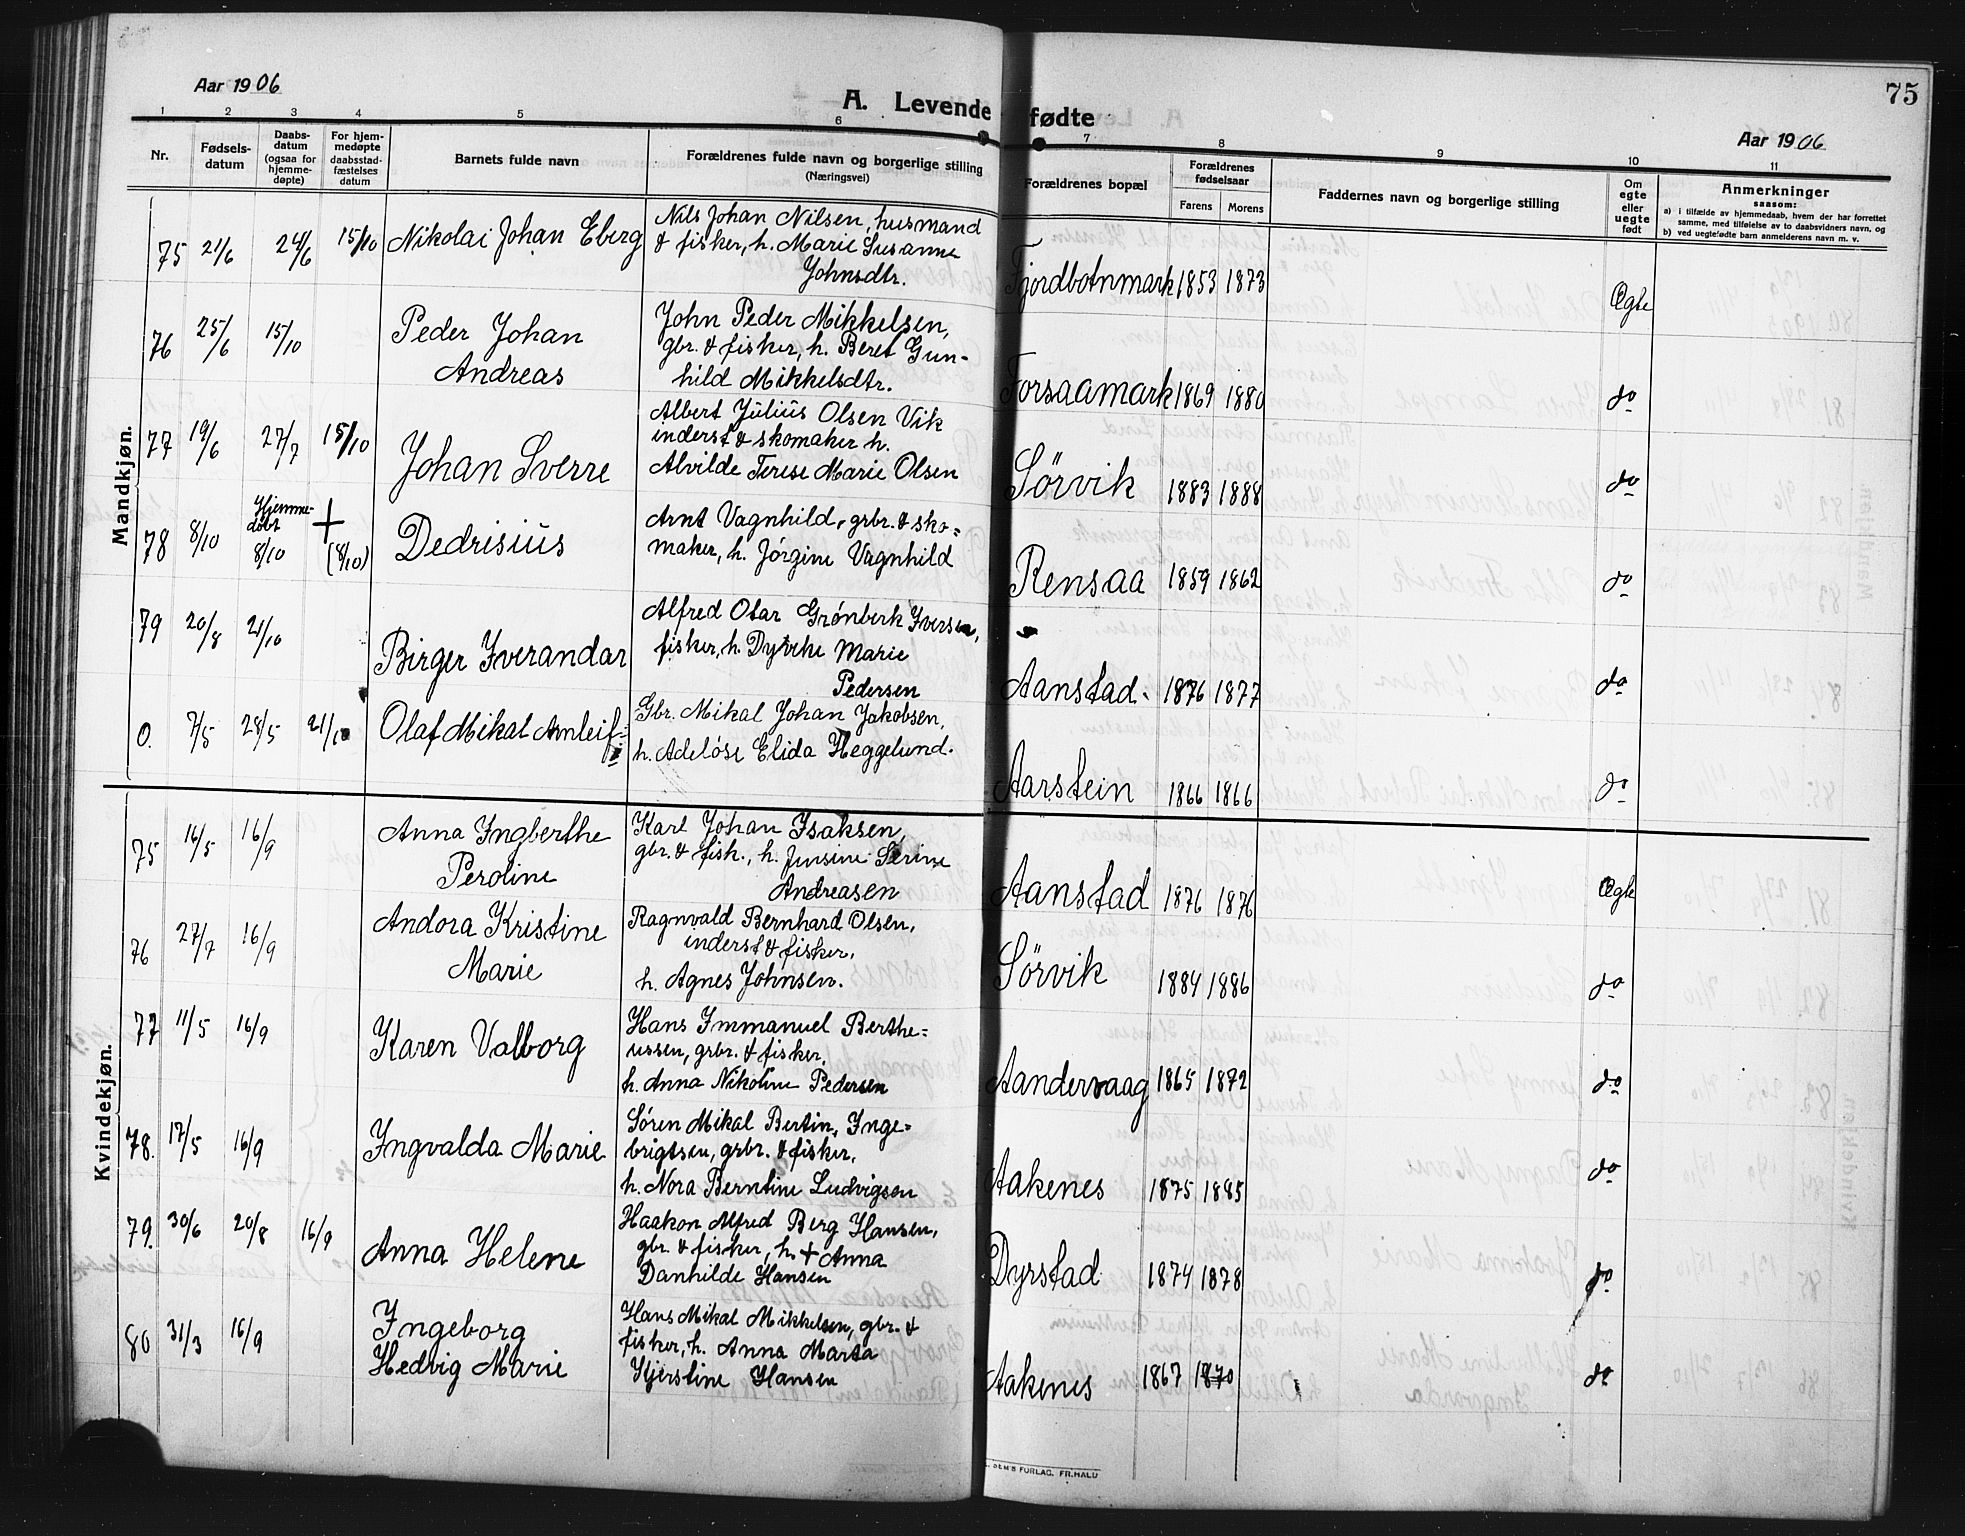 Aar 1906
A. Levende fødte
75
Aar 1906
1 2 3 4 5 6 7 8 9 10 11
Nr.
Fødsels-
datum
Daabs-
datum
(ogsaa for
hjemme-
døpte)
For hjem-
medøpte
daabsstad-
fæstelses
datum
Barnets fulde navn
Forældrenes fulde navn og borgerlige stilling
(Næringsvei)
Forældrenes bopæl
Forældrenes
fødselsaar
Farens Morens
Faddernes navn og borgerlige stilling
Om
egte
eller
uegte
født
Anmerkninger
saasom:
a) i tilfælde av hjemmedaab, hvem der har forrettet
samme, med tilføielse av to daabsvidners navn, og
b) ved uegtefødte barn anmelderens navn m. v.
Mandkjøn.
75 21/6 24/6 15/10 Nikolai Johan Eberg
Nils Johan Nilsen, husmand
& fisker, h. Marie Susanna
Johnsdtr.
Fjordbotnmark 1853 1873 Ægte
76 25/6 15/10 Peder Johan
Andreas
John Peder Mikkelsen,
gbr. & fisker, h. Beret Gun-
hild Mikkelsdtr.
Forsaamark 1869 1880 do
77 19/6 27/7 15/10 Johan Sverre
Albert Julius Olsen Vik
inderst & skomaker h.
Alvilde Terese Marie Olsen
Sörvik 1883 1888 do
78 8/10 Hjemme-
døbt
8/10 + (8/10) Dedrisius
Arnt Vagnhild, grbr. & sko=
maker, h. Jórgine Vagnhild
Rensaa 1859 1862 do
79 20/8 21/10 Birger Iverandar
Alfred Otar Grønberk Iversen,
fisker, h. Dyveke Marie
Pedersen
Aanstad. 1876 1877 do
0. 7/5 28/5 21/10 Olaf Mikal Arnleif
Gbr. Mikal Johan Jakobsen,
h. Adelóse Elida Heggelund.
Aarstein 1866 1866 do
Kvindekjøn.
75 16/5 16/9 Anna Ingberthe
Peroline
Karl Johan Isaksen,
gbr. & fisk., h. Jensine Serine
Andreasen
Aanstad 1876 1876 Ægte
76 27/7 16/9 Andora Kristine
Marie
Ragnvald Bernhard Olsen,
inderst & fisker,
h. Agnes Johnsen.
Sörvik 1884 1886 do
77 11/5 16/9 Karen Valborg
Hans Immanuel Berthe=
ussen, grbr. & fisker,
h. Anna Nikoline Pedersen
Aandervaag 1865 1872 do
78. 17/5 16/9 Ingvalda Marie
Sóren Mikal Bertin, Inge=
brigtsen, grbr. & fisker,
h. Nora Berntine Ludvigsen
Aakenes 1875 1885 do
79. 30/6 20/8 16/9 Anna Helene
Haakon Alfred Berg Hansen,
gbr. & fisker, h. + Anna
Danhilde Hansen
Dyrstad 1874 1878 do
80 31/3 16/9 Ingeborg
Hedvig Marie
Hans Mikal Mikkelsen, gbr. &
fisker, h. Anna Marta
Kjerstine Hansen
Aakenes 1867 1870 do
SEM'S FORLAG, FR.HALD